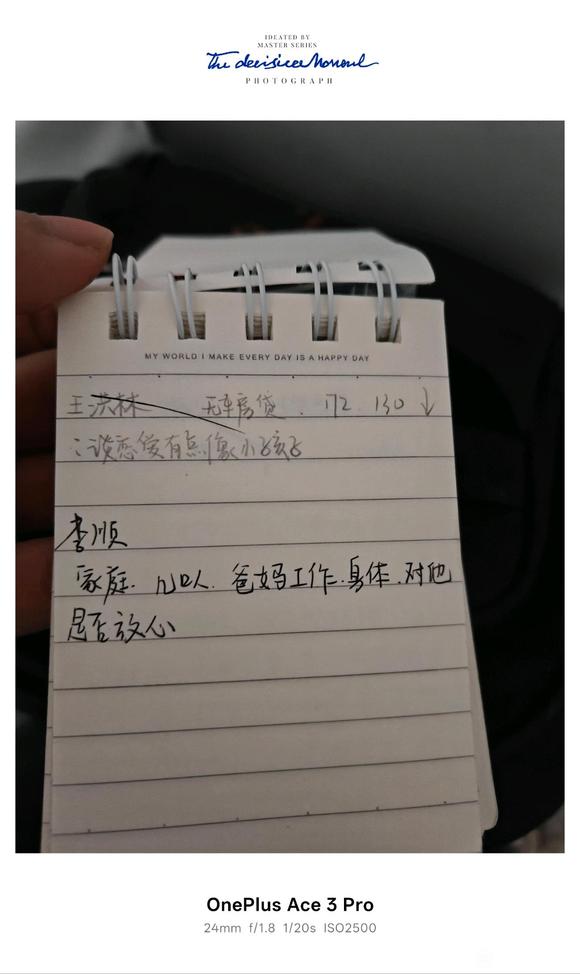 IDEATED BY
MASTER SERIES
The decisive Moment
PHOTOGRAPH
MY WORLD I MAKE EVERY DAY IS A HAPPY DAY
王洪林 无车房贷. 172. 130 ↓
:谈恋爱有点像小孩子
李顺
家庭. 几口人. 爸妈工作.身体.对他
是否放心
OnePlus Ace 3 Pro
24mm f/1.8 1/20s ISO2500